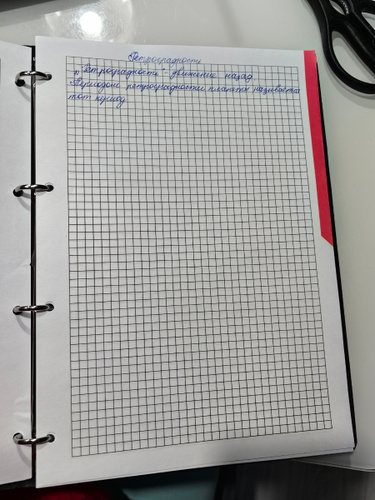 Ретроградность
"Ретроградность движение назад.
Периодом ретроградности планеты называется
тот период